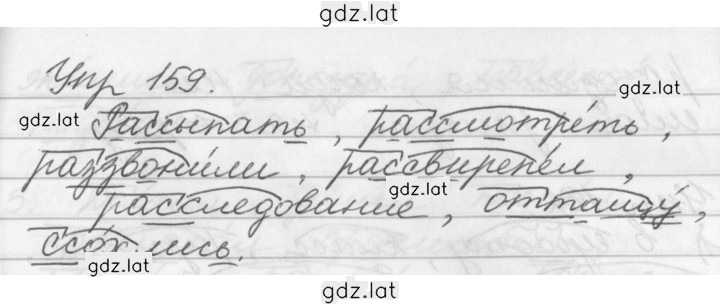 gdz.lat
Упр 159.
gdz.lat
gdz.lat
Рассыпать, рассмотре́ть,
раззвони́ли, рассвирепе́л,
gdz.lat
расследование, оттащу́,
ссо́рились.
gdz.lat
gdz.lat